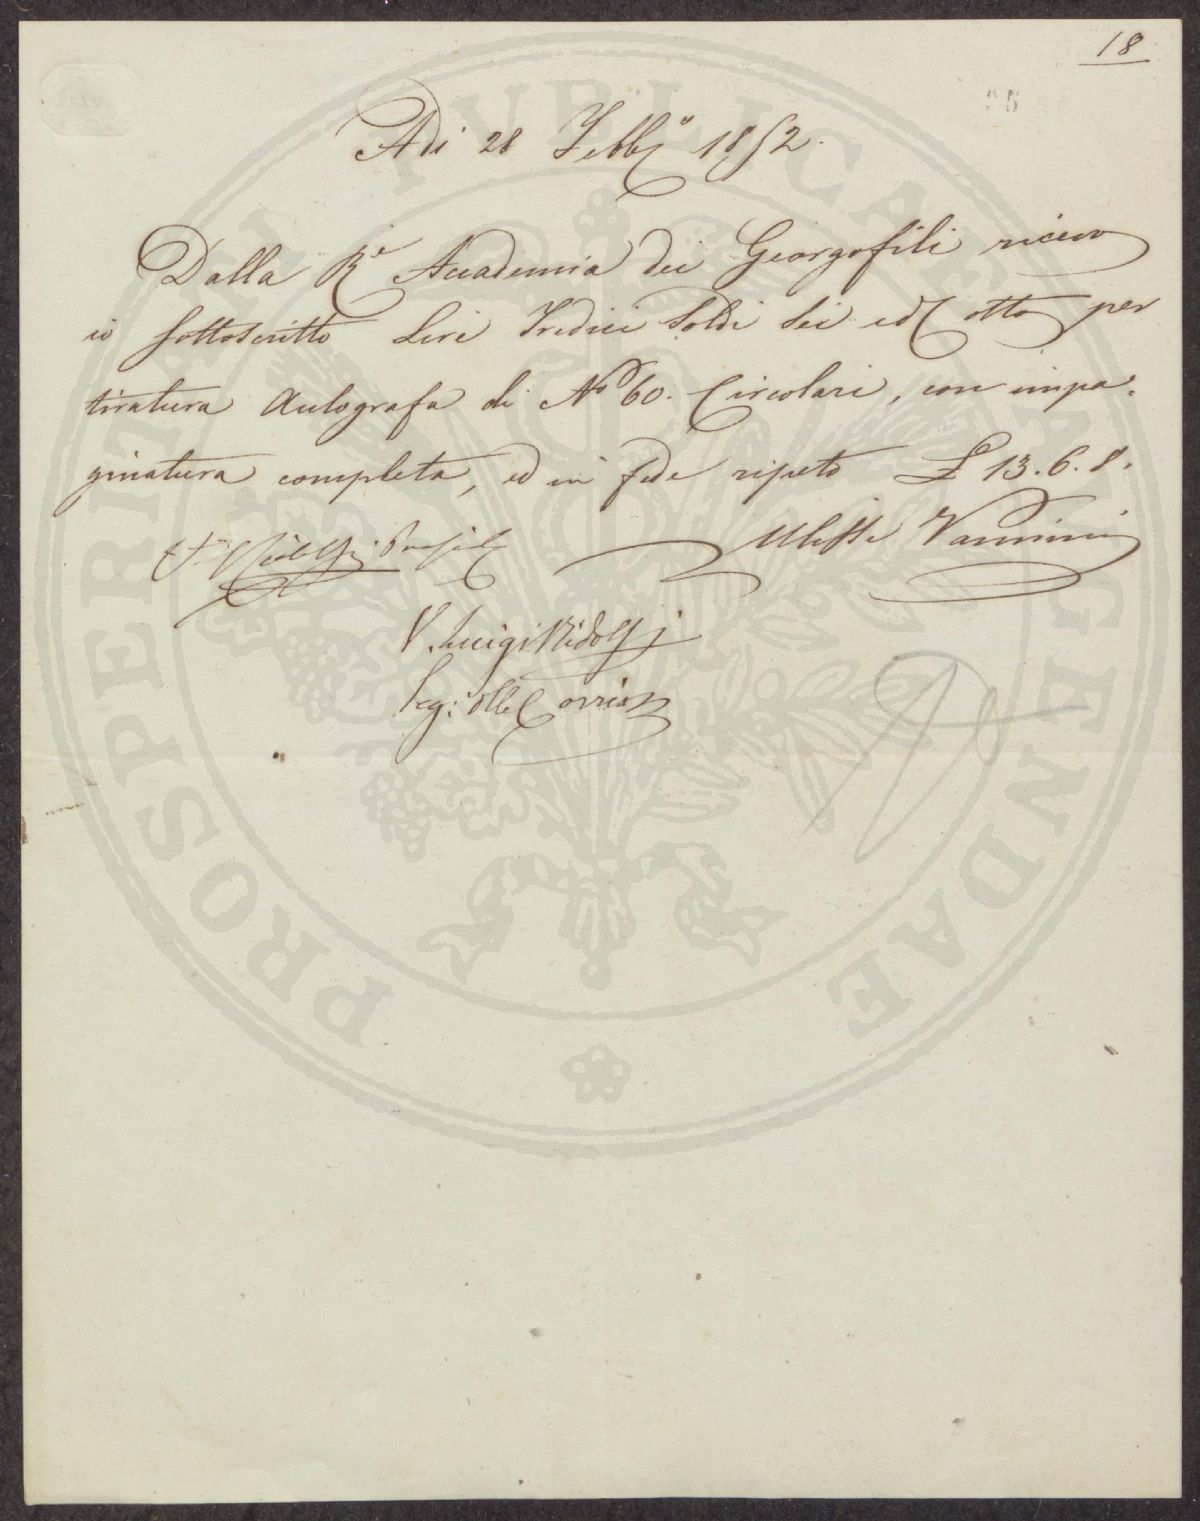 18
Adi 28 Febb.º 1852.
Dalla R.e Accademia dei Georgofili ricevo
io sottoscritto Lire Tredici Soldi Sei ed otto per
tiratura Autografa di Nº 60. Circolari, con impa=
ginatura completa, ed in fede ripeto £ 13.6.8.
Ulisse Vannini
Ridolfi
V. Luigi Ridolfi
Seg: delle Corrisp
PROSPERITATI PVBLICAE AVGENDAE